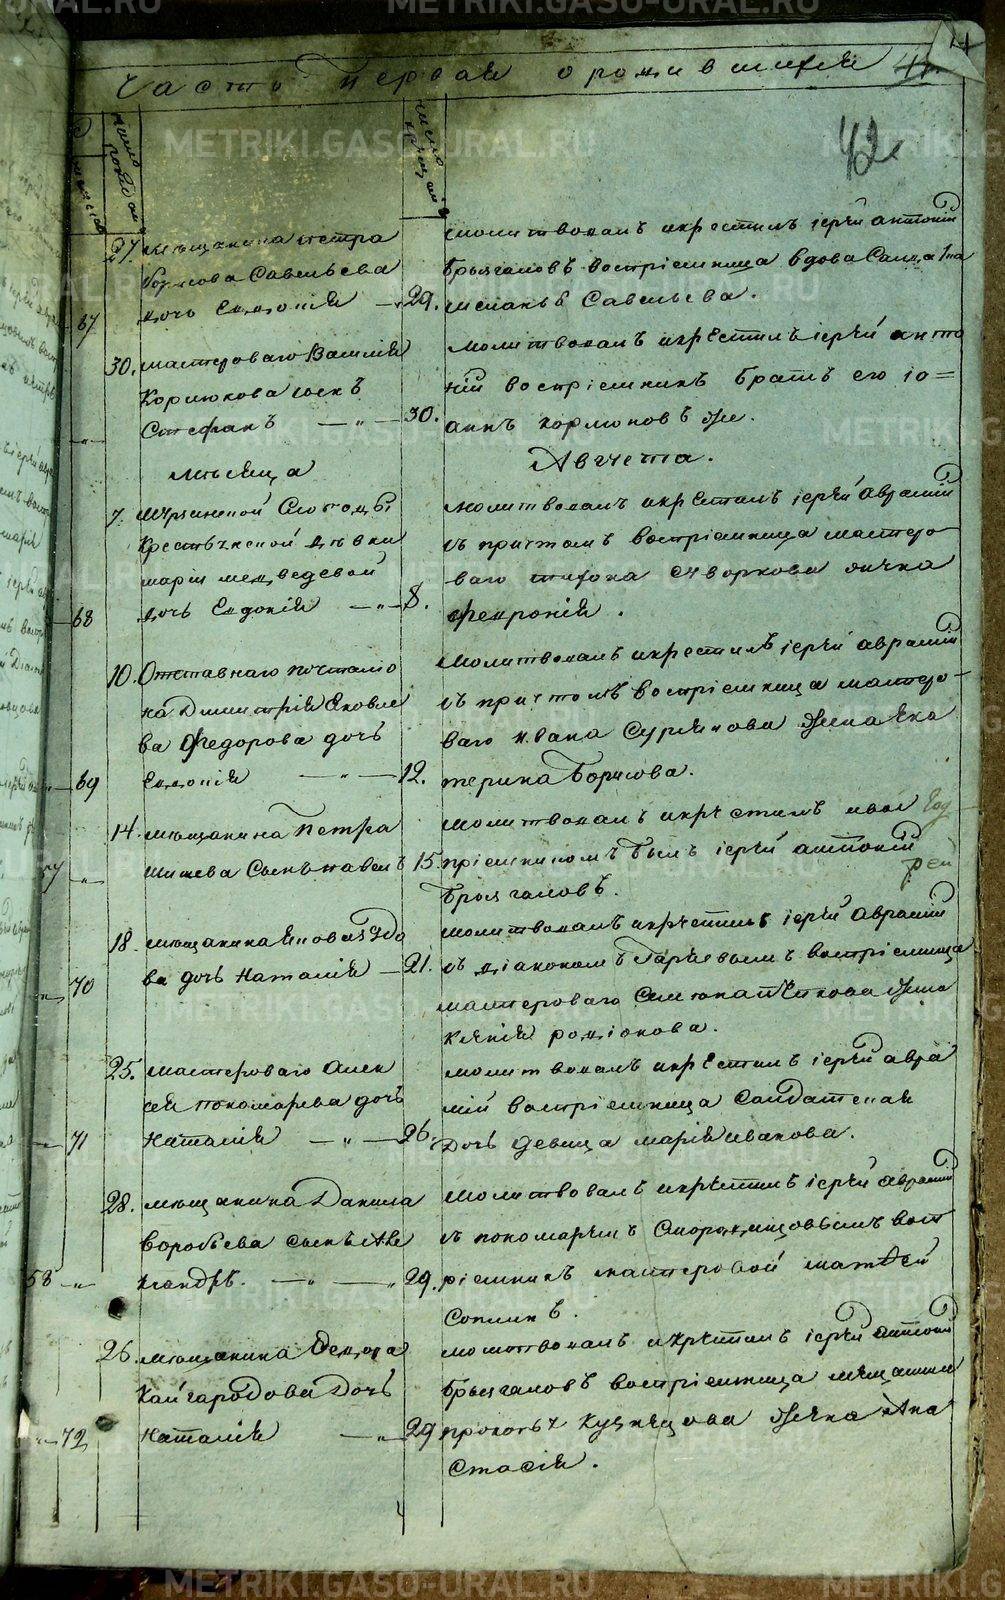 Часть Первая о родившихся
42
число рожден
число крещения
27. мѣщанина петра
Борисова Савельева
67 дочь Евдокія — 29.
молитвовалъ и крестилъ іерей антоній
Брызгаловъ воспріемница вдова
Савельева.
30. мастероваго Василія
Кормюкова сынъ
Стефанъ — " — 30.
молитвовалъ и крестилъ іерей анто
ній воспріемникъ братъ его іо=
аннъ кормюковъ же.
мѣсяца Августа.
7. слободы
Крестьянской дѣвки
маріи медведевой
68 дочь Евдокія — " — 8.
молитвовалъ и крестилъ іерей Авраамій
съ причтомъ воспріемница мастеро
ваго тихона скворкова
Февронія.
10. Отставнаго почталіо
на Димитрія Яковле
ва Федорова дочь
69 Евдокія — " — 12.
молитвовалъ и крестилъ іерей авраамій
съ причтомъ воспріемница мастеро-
ваго ивана жена ека
терина Борисова.
14. мѣщанина Петра
Шишева Сынъ павелъ 15.
молитвовалъ и крестилъ
пріемникомъ былъ іерей антоній
Брызгаловъ.
18. мѣщанина
70 ва дочь Наталія — 21.
молитвовалъ и крестилъ іерей Авраамій
съ діакономъ воспріемница
мастероваго жена
родіонова.
25. мастероваго Алек
сея пономарева дочь
71 Наталія — " — 26.
молитвовалъ и крестилъ іерей авра
мій воспріемница Салдатская
Дочь девица марія иванова.
28. мѣщанина Данила
воробьева сынъ Але
58 " ксандръ. — " — " 29.
молитвовалъ и крестилъ іерей авраамій
съ пономаремъ восп
ріемникъ мастеровой матвей
Сопинъ.
26. мѣщанина Федора
Кайгородова Дочь
72 Наталія — " — 29
молитвовалъ и крестилъ іерей антоній
Брызгаловъ воспріемница мещанина
прокопья Кузнецова жена Ана
стасія.
METRIKI.GASO-URAL.RU